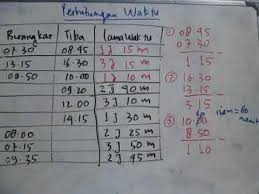 Perhitungan Waktu
Berangkat Tiba Lama Waktu
07.30 08.45 1 j 15 m
13.15 16.30 3 j 15 m
08.50 10.00 1 j 10 m
09.20 2 j 40 m
12.00 3 j 10 m
14.15 1 j 30 m
08.00 2 j 25 m
07.15 3 j 50 m
09.35 2 j 45 m
① 08.45
07.30
1.15
② 16.30
13.15
3.15
60
1 jam = 60
③ 10.00
8.50
1.10